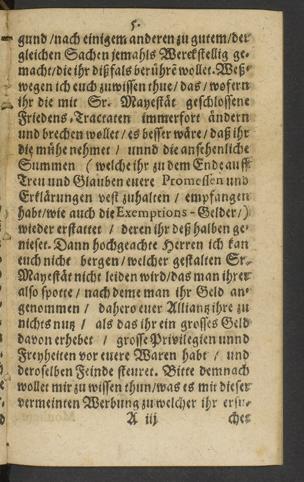 5.
gund / nach einigem anderen zu gutem / der
gleichen Sachen jemahls Werckstellig ge-
macht / die ihr dißfals berührē wollet. Weß-
wegen ich euch zuwissen thue / das / wofern
ihr die mit Sr. Mayestät geschlossene
Friedens-Tractaten immerfort ändern
und brechen wollet / es besser wäre / daß ihr
die mühe nehmet / unnd die ansehenliche
Summen ( welche ihr zu dem Ende auff
Treu und Glauben euere Promessen und
Erklärungen vest zuhalten / empfangen
habt / wie auch die Exemptions-Gelder / )
wieder erstattet / deren ihr deß halben ge-
nieset. Dann hochgeachte Herren ich kan
euch nicht bergen / welcher gestalten Sr.
Mayestät nicht leiden wird / das man ihrer
also spotte / nach deme man ihr Geld an-
genommen / dahero euer Alliantz ihre zu
nichts nutz / als das ihr ein grosses Geld
davon erhebet / grosse Privilegien unnd
Freyheiten vor euere Waren habt / und
deroselben Feinde steuret. Bitte demnach
wollet mir zu wissen thun / was es mit dieser
vermeinten Werbung zu welcher ihr ersu-
A iij
ches